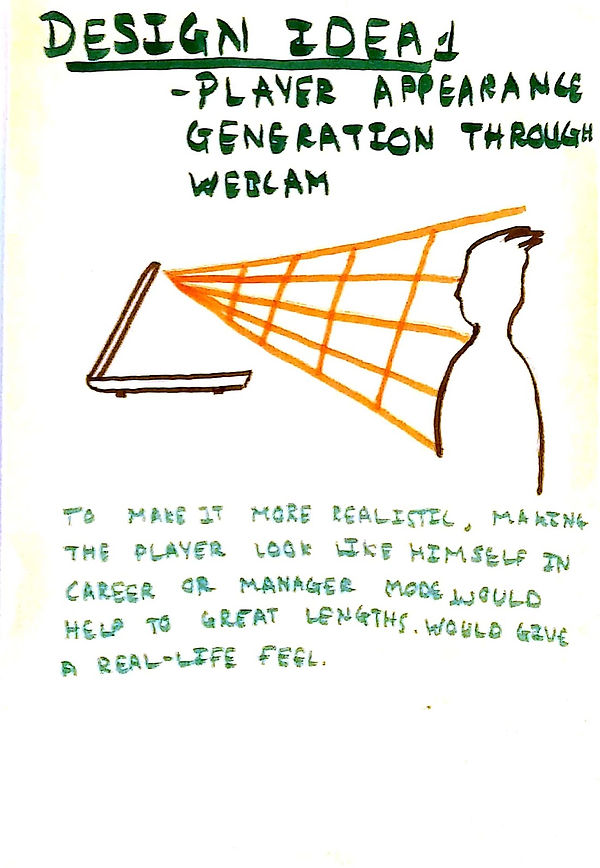 DESIGN IDEA 1
-PLAYER APPEARANCE
GENERATION THROUGH
WEBCAM
TO MAKE IT MORE REALISTIC, MAKING
THE PLAYER LOOK LIKE HIMSELF IN
CAREER OR MANAGER MODE WOULD
HELP TO GREAT LENGTHS. WOULD GIVE
A REAL-LIFE FEEL.